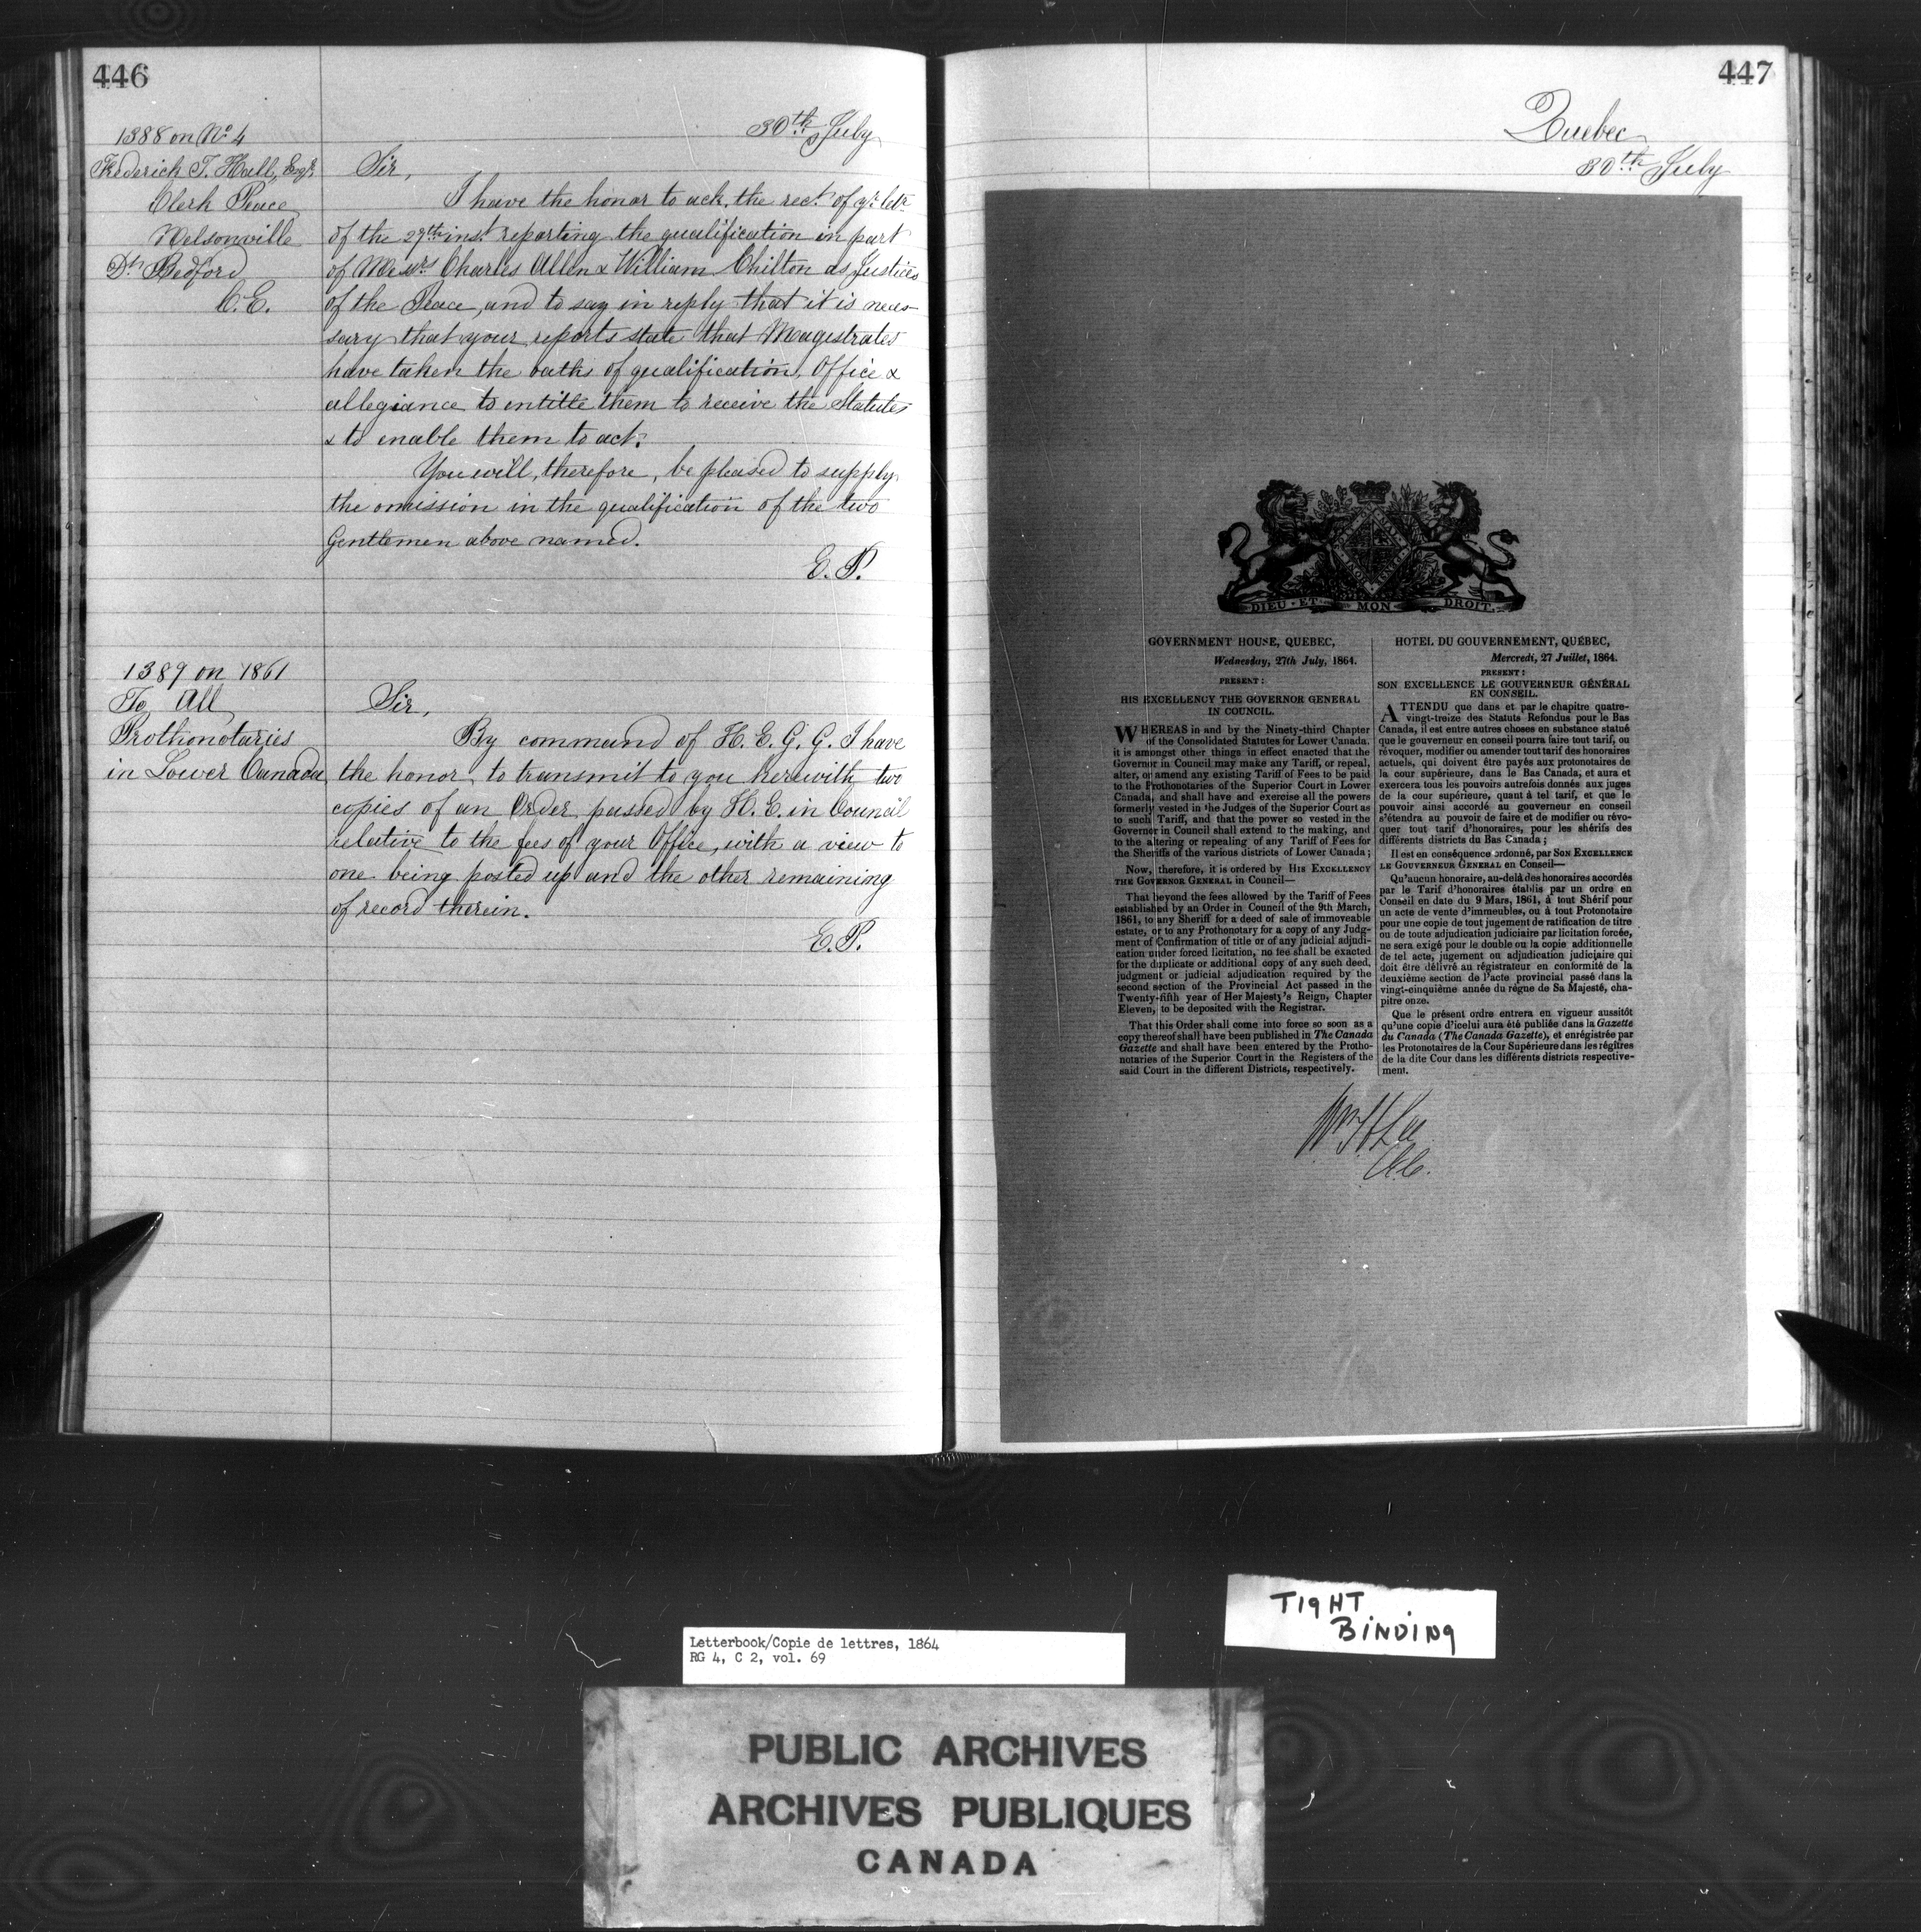 446
30th July
1388 on No 4
Frederick T. Hall, Esqr
Clerk Peace
Nelsonville
Dt Bedford
C.E.
Sir,
I have the honor to ack. the rect. of yr. letr
of the 27th inst. reporting the qualification in part
of Messrs Charles Allen & William Chilton as Justices
of the Peace, and to say in reply that it is neces-
sary that your reports state that Magistrates
have taken the oaths of qualification, Office &
allegiance to entitle them to receive the Statutes
& to enable them to act.
You will, therefore, be pleased to supply
the omission in the qualification of the two
Gentlemen above named.
E. P.
1389 on 1861
To All
Prothonotaries
in Lower Canada
Sir,
By command of H. E. G. G. I have
the honor to transmit to you herewith two
copies of an Order passed by H. E. in Council
relative to the fees of your Office, with a view to
one being posted up and the other remaining
of record therein.
E. P.
447
Quebec
30th July
DIEU · ET MON DROIT.
GOVERNMENT HOUSE, QUEBEC,
Wednesday, 27th July, 1864.
PRESENT :
HIS EXCELLENCY THE GOVERNOR GENERAL
IN COUNCIL.
WHEREAS in and by the Ninety-third Chapter
of the Consolidated Statutes for Lower Canada,
it is amongst other things in effect enacted that the
Governor in Council may make any Tariff, or repeal,
alter, or amend any existing Tariff of Fees to be paid
to the Prothonotaries of the Superior Court in Lower
Canada, and shall have and exercise all the powers
formerly vested in the Judges of the Superior Court as
to such Tariff, and that the power so vested in the
Governor in Council shall extend to the making, and
to the altering or repealing of any Tariff of Fees for
the Sheriffs of the various districts of Lower Canada ;
Now, therefore, it is ordered by HIS EXCELLENCY
THE GOVERNOR GENERAL in Council—
That beyond the fees allowed by the Tariff of Fees
established by an Order in Council of the 9th March,
1861, to any Sheriff for a deed of sale of immoveable
estate, or to any Prothonotary for a copy of any Judg-
ment of Confirmation of title or of any judicial adjudi-
cation under forced licitation, no fee shall be exacted
for the duplicate or additional copy of any such deed,
judgment or judicial adjudication required by the
second section of the Provincial Act passed in the
Twenty-fifth year of Her Majesty's Reign, Chapter
Eleven, to be deposited with the Registrar.
That this Order shall come into force so soon as a
copy thereof shall have been published in The Canada
Gazette and shall have been entered by the Protho-
notaries of the Superior Court in the Registers of the
said Court in the different Districts, respectively.
HOTEL DU GOUVERNEMENT, QUÉBEC,
Mercredi, 27 Juillet, 1864.
PRESENT :
SON EXCELLENCE LE GOUVERNEUR GÉNÉRAL
EN CONSEIL.
ATTENDU que dans et par le chapitre quatre-
vingt-treize des Statuts Refondus pour le Bas
Canada, il est entre autres choses en substance statué
que le gouverneur en conseil pourra faire tout tarif, ou
révoquer, modifier ou amender tout tarif des honoraires
actuels, qui doivent être payés aux protonotaires de
la cour supérieure, dans le Bas Canada, et aura et
exercera tous les pouvoirs autrefois donnés aux juges
de la cour supérieure, quant à tel tarif, et que le
pouvoir ainsi accordé au gouverneur en conseil
s'étendra au pouvoir de faire et de modifier ou révo-
quer tout tarif d'honoraires, pour les shérifs des
différents districts du Bas Canada ;
Il est en conséquence ordonné, par SON EXCELLENCE
LE GOUVERNEUR GENERAL en Conseil—
Qu'aucun honoraire, au-delà des honoraires accordés
par le Tarif d'honoraires établis par un ordre en
Conseil en date du 9 Mars, 1861, à tout Shérif pour
un acte de vente d'immeubles, ou à tout Protonotaire
pour une copie de tout jugement de ratification de titre
ou de toute adjudication judiciaire par licitation forcée,
ne sera exigé pour le double ou la copie additionnelle
de tel acte, jugement ou adjudication judiciaire qui
doit être délivré au régistrateur en conformité de la
deuxième section de l'acte provincial passé dans la
vingt-cinquième année du règne de Sa Majesté, cha-
pitre onze.
Que le présent ordre entrera en vigueur aussitôt
qu'une copie d'icelui aura été publiée dans la Gazette
du Canada (The Canada Gazette), et enrégistrée par
les Protonotaires de la Cour Supérieure dans les régîtres
de la dite Cour dans les différents districts respective-
ment.
Wm H Lee
C.E.C.
TIGHT
BINDING
Letterbook/Copie de lettres, 1864
RG 4, C 2, vol. 69
PUBLIC ARCHIVES
ARCHIVES PUBLIQUES
CANADA